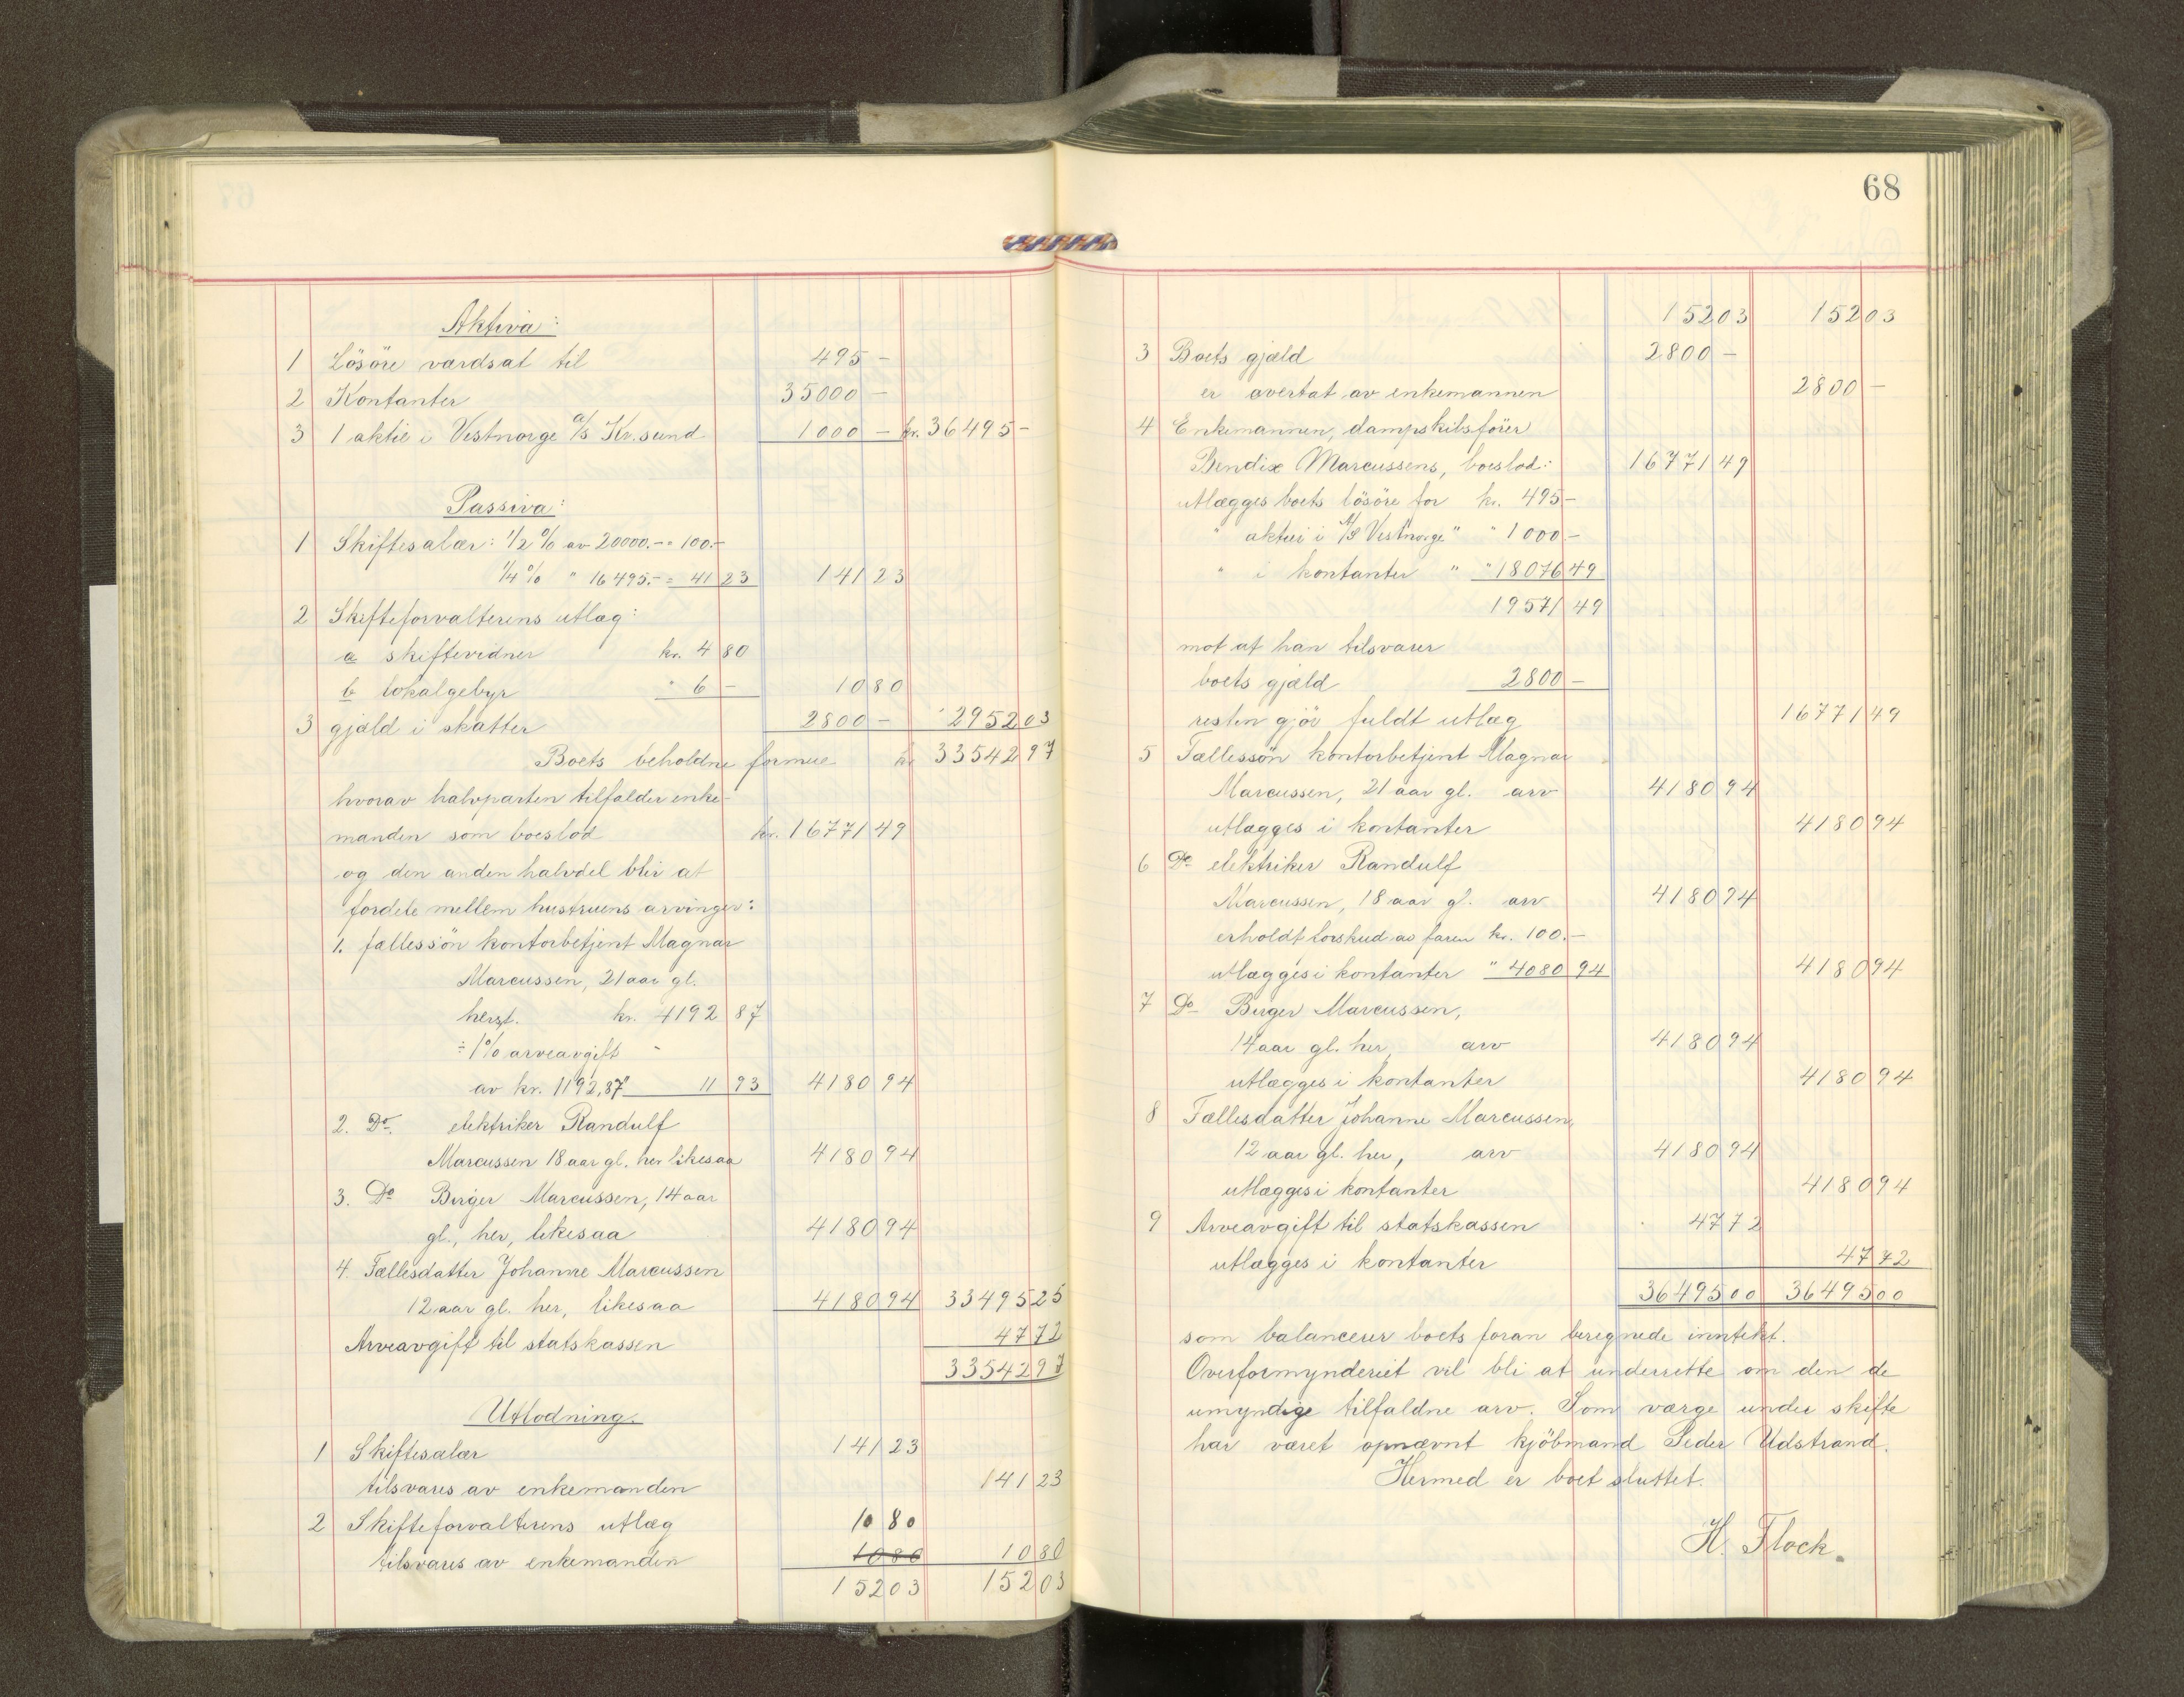 Aktiva:
1 Lösöre værdsat til 495 –
2 Kontanter 35000 –
3 1 aktie i Vestnorge a/s Kr.sund 1000 – kr. 36495 –
Passiva:
1 Skiftesalær: 1/2 % av 20000.– = 100.–
1/4 % " 16495.– = 41 23 141 23
2 Skifteforvalterens utlæg:
a skiftevidner kr. 4 80
b lokalgebyr " 6 – 10 80
3 gjæld i skatter 2800 – " 2952 03
Boets beholdne formue kr 33542 97
hvorav halvparten tilfalder enke-
manden som boeslod kr. 16771 49
og den anden halvdel blir at
fordele mellem hustruens arvinger:
1. fællessön kontorbetjent Magnar
Marcussen, 21 aar gl.
herst. kr. 4192 87
÷ 1% arveavgift "
av kr. 1192,87 11 93 4180 94
2. Do. elektriker Randulf
Marcussen 18 aar gl. her likesaa 4180 94
3. Do Birger Marcussen, 14 aar
gl., her, likesaa 4180 94
4. Fællesdatter Johanne Marcussen
12 aar gl. her, likesaa 4180 94 33495 25
Arveavgift til statskassen 47 72
33542 97
Utlodning.
1 Skiftesalær 141 23
tilsvares av enkemanden 141 23
2 Skifteforvalterens utlæg 10 80
tilsvares av enkemanden 10 80 10 80
152 03 152 03
68
152 03 152 03
3 Boets gjæld 2800 –
er overtat av enkemannen 2800 –
4 Enkemannen, dampskibsförer
Bendix Marcussens, boeslod: 16771 49
utlægges boets lösöre for kr. 495 –
" aktiei i A/S Vestnorge " " 1000 –
" i kontanter " " 18076 49
19571 49
mot at han tilsvarer
boets gjæld 2800 –
resten gjör fuldt utlæg 16771 49
5 Fællessön kontorbetjent Magnar
Marcussen, 21 aar gl. arv 4180 94
utlægges i kontanter 4180 94
6 Do elektriker Randulf
Marcussen, 18 aar gl. arv 4180 94
erholdt forskud av faren kr. 100.–
utlægges i kontanter " 4080 94 4180 94
7 Do Birger Marcussen,
14 aar gl. her, arv 4180 94
utlægges i kontanter 4180 94
8 Fællesdatter Johanne Marcussen,
12 aar gl. her, arv 4180 94
utlægges i kontanter 4180 94
9 Arveavgift til statskassen 47 72
utlægges i kontanter 47 72
36495 00 36495 00
som balancerer boets foran beregnede inntekt.
Overformynderiet vil bli at underrette om den de
umyndige tilfaldne arv. Som værge under skifte
har været opnævnt kjöbmand Peder Udstrand.
Hermed er boet sluttet.
H. Flock.